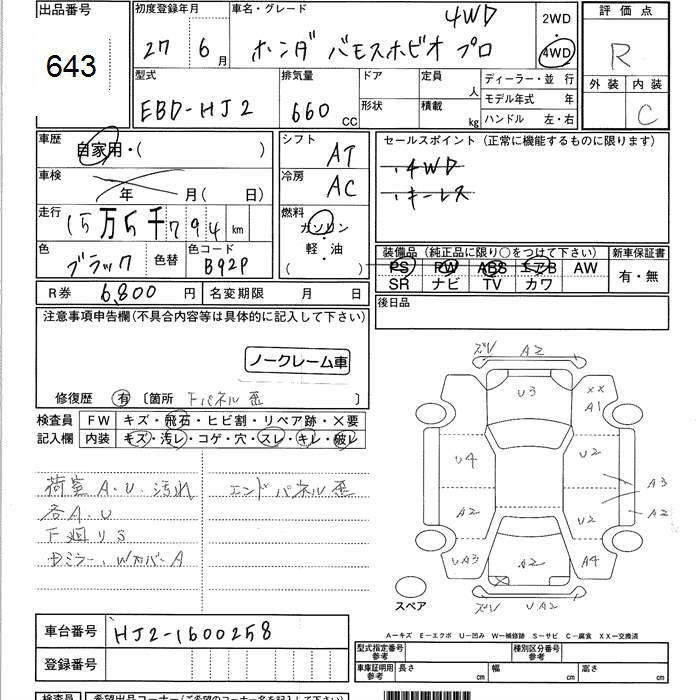 出品番号 初度登録年月 車名・グレード 4WD 2WD 評価点
643 27年 6月 ホンダ バモスホビオ プロ 4WD R
型式 排気量 ドア 定員 人 ディーラー・並 行 外装 内装
EBD-HJ2 660 CC 形状 積載 kg モデル年式 年 C
ハンドル 左・右
車歴 自家用・( ) シフト AT セールスポイント(正常に機能するものに限ります)
車検 年 月( 日) 冷房 AC ・4WD
・キーレス
走行 15万5千794 km 燃料 ガソリン
軽・油
( )
色 ブラック 色替 色コード B92P 装備品(純正品に限り○をつけて下さい) 新車保証書
PS PW ABS エアB AW 有・無
SR ナビ TV カワ
R券 6,800円 名変期限 月 日 後日品
注意事項申告欄(不具合内容等は具体的に記入して下さい)
ノークレーム車
修復歴 有 〔箇所 Fパネル歪 〕
検査員 FW キズ・飛石・ヒビ割・リペア跡・×要
記入欄 内装 キズ・汚レ・コゲ・穴・スレ・キレ・破レ
ズレ A2
U3 XX
A1
U4 U2
A3
A2 U2 A2
UA3 A2 A4
ズレ UA2
スペア
荷室A.U.汚れ エンドパネル歪
各A.U
下廻りS
Dミラー、WカバーA
A−キズ E−エクボ U−凹み W−補修跡 S−サビ C−腐食 XX−交換済
車台番号 HJ2-1600258
登録番号
型式指定番号 参考 種別区分番号 参考
車庫証明用 参考 長さ cm 幅 cm 高さ cm
検査員 希望出品コーナー(ご希望のコーナー名を記入して下さい)